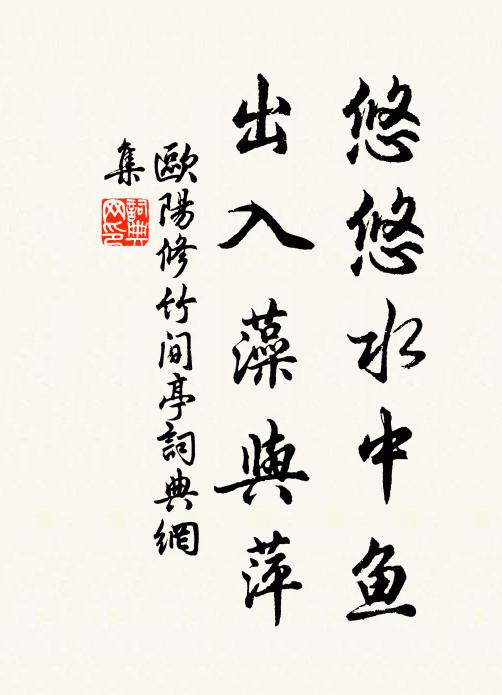 悠悠水中魚
出入藻與萍
歐陽修竹间亭詞典網
集
詞典網印